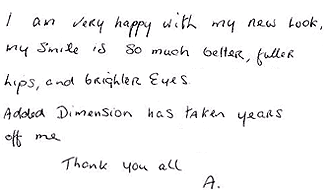 I am very happy with my new look,
my smile is so much better, fuller
lips, and brighter Eyes
Added Dimension has taken years
off me
Thank you all
A.